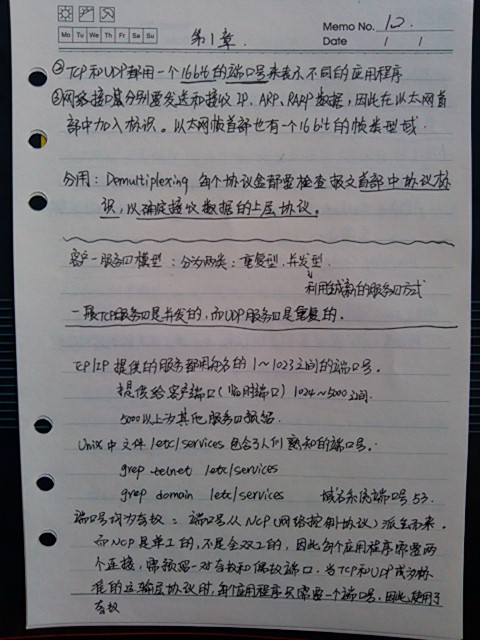 Mo Tu We Th Fr Sa Su
第1章.
Memo No. 12.
Date / /
② TCP和UDP都用一个16bit的端口号来表示不同的应用程序
③网络接口分别要发送和接收IP、ARP、RARP数据,因此在以太网首
部中加入标识。以太网帧首部也有一个16bit的帧类型域.
分用:Demultiplexing 每个协议盒都要检查报文首部中协议标
识,以确定接收数据的上层协议。
客户-服务口模型:分为两类:重复型,并发型.
利用的服务口方式
一般TCP服务口是并发的,而UDP服务口是重复的.
TCP/IP提供的服务都用知名的1~1023之间的端口号.
提供给客户端口(临时端口)1024~5000之间.
5000以上为其他服务口预留.
Unix中文件/etc/services包含了人们熟知的端口号.
grep telnet /etc/services
grep domain /etc/services 域名系统端口号53.
端口号均为奇数:端口号从NCP(网络控制协议)派生而来.
而NCP是单工的,不是全双工的,因此每个应用程序需要两
个连接,需预留一对奇数和偶数端口.当TCP和UDP成为标
准的运输层协议时,每个应用程序只需要一个端口号.因此,使用了
奇数